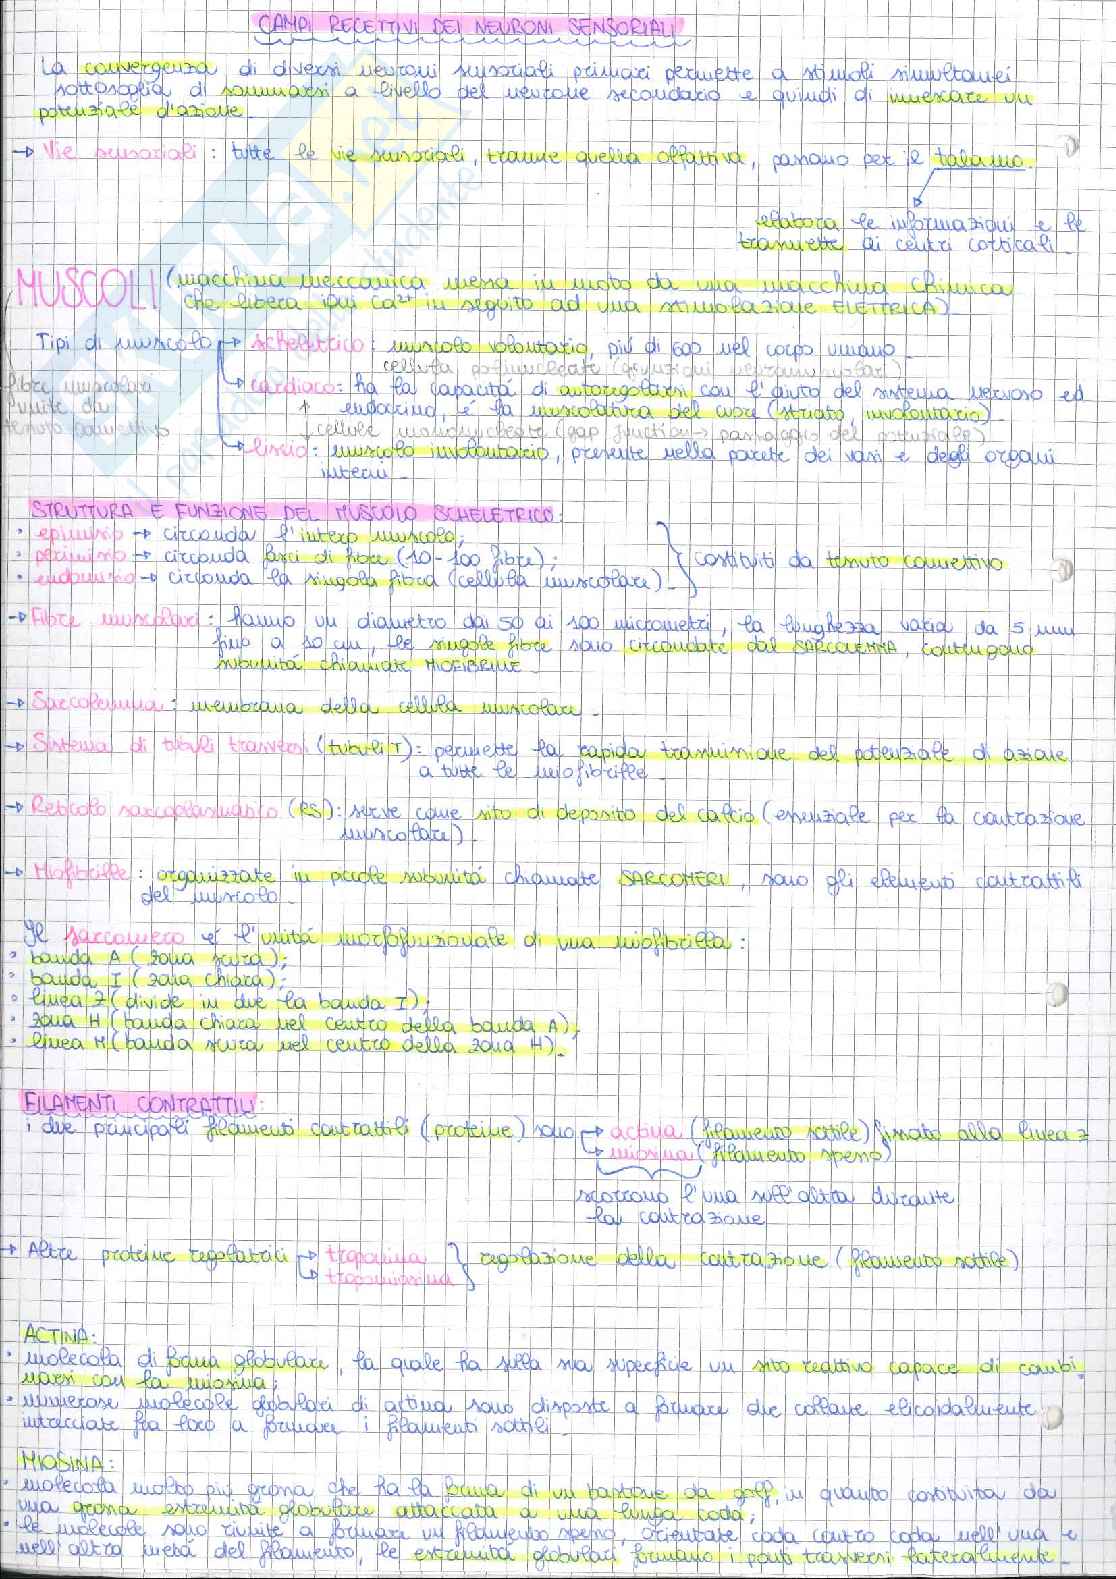 CAMPI RECETTIVI DEI NEURONI SENSORIALI
La convergenza di diversi neuroni sensoriali primari permette a stimoli simultanei
sottosoglia di sommarsi a livello del neurone secondario e quindi di innescare un
potenziale d'azione.
→ Vie sensoriali: tutte le vie sensoriali, tranne quella olfattiva, passano per il talamo.
elabora le informazioni e le
trasmette ai centri corticali.
MUSCOLI (macchina meccanica messa in moto da una macchina chimica
che libera ioni Ca2+ in seguito ad una stimolazione ELETTRICA)
Tipi di muscolo → scheletrico: muscolo volontario, più di 600 nel corpo umano.
cellula polinucleate (giunzioni neuromuscolari)
fibre muscolari
unite da
tessuto connettivo
→ cardiaco: ha la capacità di autoregolarsi con l'aiuto del sistema nervoso ed
endocrino, è la muscolatura del cuore (striato, involontario)
cellule mononucleate (gap junction → passaggio del potenziale)
→ liscio: muscolo involontario, presente nella parete dei vasi e degli organi
interni.
STRUTTURA E FUNZIONE DEL MUSCOLO SCHELETRICO:
• epimisio → circonda l'intero muscolo;
• perimisio → circonda fasci di fibre (10-100 fibre);
• endomisio → circonda la singola fibra (cellula muscolare).
costituiti da tessuto connettivo
→ Fibre muscolari: hanno un diametro dai 50 ai 100 micrometri, la lunghezza varia da 5 mm
fino a 10 cm, le singole fibre sono circondate dal SARCOLEMMA, contengono
subunità chiamate MIOFIBRILLE.
→ Sarcolemma: membrana della cellula muscolare.
→ Sistema di tubuli trasversi (tubuli T): permette la rapida trasmissione del potenziale di azione
a tutte le miofibrille.
→ Reticolo sarcoplasmatico (RS): serve come sito di deposito del calcio (essenziale per la contrazione
muscolare).
→ Miofibrille: organizzate in piccole subunità chiamate SARCOMERI, sono gli elementi contrattili
del muscolo.
Il sarcomero è l'unità morfofunzionale di una miofibrilla:
• banda A (zona scura);
• banda I (zona chiara);
• linea Z (divide in due la banda I);
• zona H (banda chiara nel centro della banda A);
• linea M (banda scura nel centro della zona H).
FILAMENTI CONTRATTILI:
i due principali filamenti contrattili (proteine) sono → actina (filamento sottile) fissato alla linea Z
→ miosina (filamento spesso)
scorrono l'una sull'altra durante
la contrazione
→ Altre proteine regolatrici → troponina
→ tropomiosina
regolazione della contrazione (filamento sottile)
ACTINA:
• molecola di forma globulare, la quale ha sulla sua superficie un sito reattivo capace di combi
narsi con la miosina;
• numerose molecole globulari di actina sono disposte a formare due collane elicoidalmente
intrecciate fra loro a formare i filamenti sottili.
MIOSINA:
• molecola molto più grossa che ha la forma di un bastone da golf, in quanto costituita da
una grossa estremità globulare attaccata a una lunga coda;
• le molecole sono riunite a formare un filamento spesso, orientate coda contro coda nell'una e
nell'altra metà del filamento, le estremità globulari formano i ponti trasversi lateralmente.